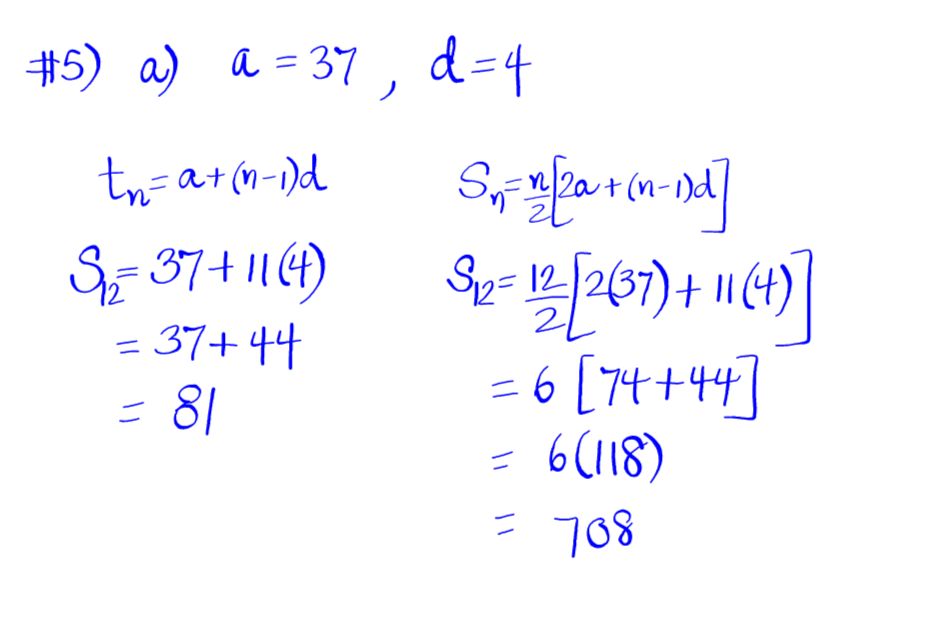 #5) a) a = 37 , d = 4
tₙ = a + (n-1)d
S₁₂ = 37 + 11(4)
= 37 + 44
= 81
Sₙ = n/2 [2a + (n-1)d]
S₁₂ = 12/2 [2(37) + 11(4)]
= 6 [74 + 44]
= 6(118)
= 708